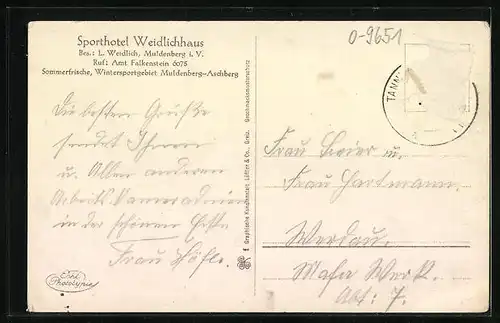 Sporthotel Weidlichhaus
Bes.: L. Weidlich, Muldenberg i. V.
Ruf: Amt Falkenstein 6075
Sommerfrische, Wintersportgebiet Muldenberg-Aschberg
0-9651
TANN
Die besten Grüße
sendet Ihnen
u. Allen anderen
Arbeitskameradinnen
in der schönen
Frau Höfl.
Echt Phototypie
Graphische Kunstanstalt Löffler & Co., Greiz. Geschmacksmusterschutz
Frau Beier u.
Frau Hartmann.
Werdau.
Mafa Werk.
Abt: 7.